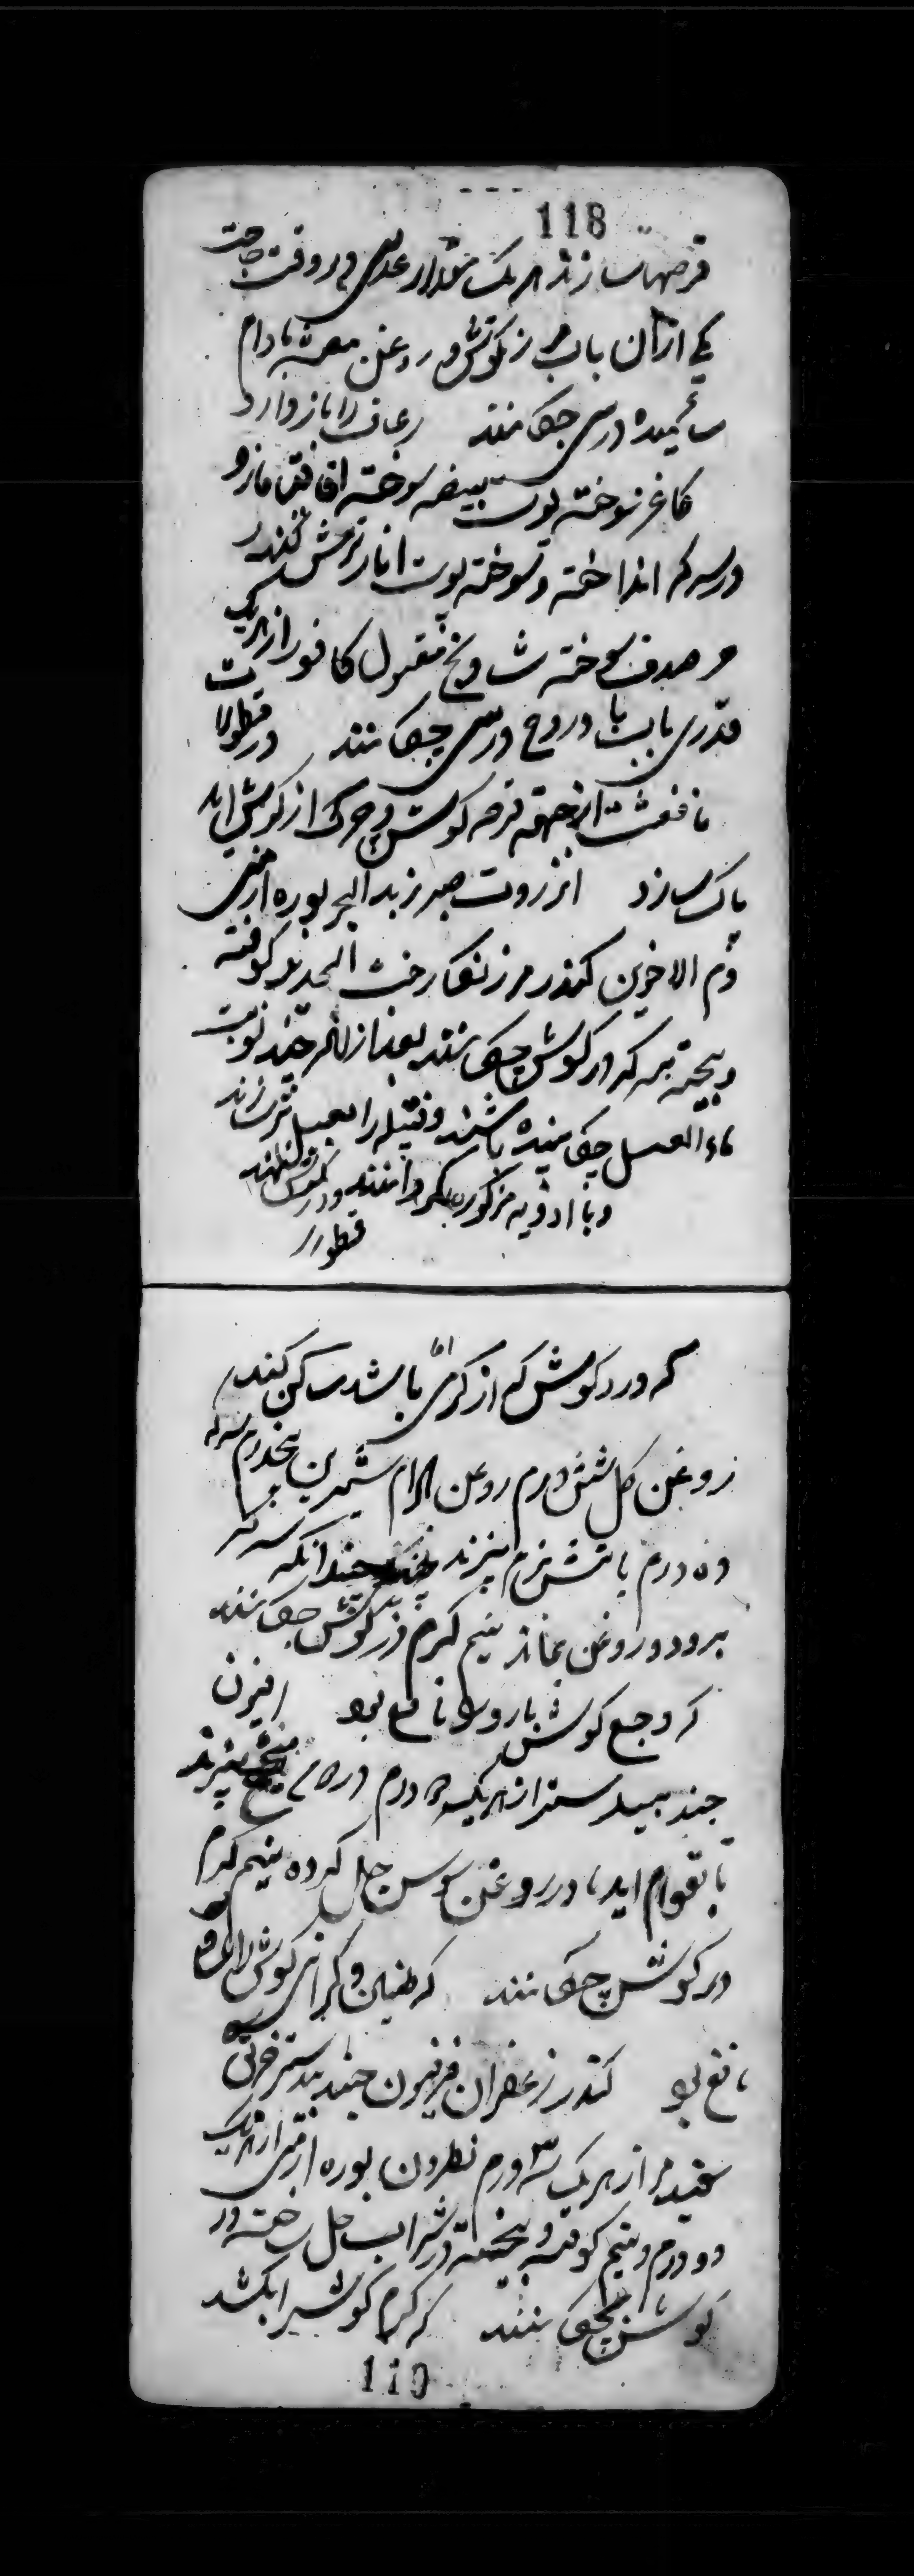 118
قرصها سازند هر یک مقدار عدسی و در وقت حاجت
یکی ازان باب مرزنکوش و روغن بادام
سائیده در بینی چکانند رعاف را باز دارد
کاغذ سوخته پوست بیضه سوخته اقاقیا مازو
در سرکه انداخته و سوخته پوست انار ترش کندر
و صدف سوخته شادنج مغسول کافور از هر یک
قدری باب بادروج در بینی چکانند قطورات
نافعست از جهة قرحه کوش و چرک از کوش
پاک سازد انزروت صبر زبد البحر بوره ارمنی
دم الاخوین کندر مر زنکار خبث الحدید کوفته
و بیخته بسرکه در کوش چکانند بعد از انکه چند نوبت
ماء العسل چکانیده باشند و فتیله را بعسل تر سازند
و با ادویه مذکوره بگردانند و در کوش نهند
قطور
که درد کوش که از کرمی باشد ساکن کند
روغن کل شش درم روغن بادام شیرین پنجدرم سرکه
ده درم باتش نرم بپزند چندانکه سرکه
برود و روغن بماند نیم کرم در کوش چکانند
که وجع کوش بارد را نافع بود افیون
جند بیدستر از هر یک درم در می پخته بپزند
تا بقوام اید و در روغن سوسن حل کرده نیم کرم
در کوش چکانند که طنین و کرانی کوش را
نافع بود کندر زعفران فرفیون جند بیدستر خربق
سفید مر از هر یک سه درم نطرون بوره ارمنی از هر یک
دو درم و نیم کوفته و بیخته در شراب حل ساخته در
کوش چکانند که کرم کوش را بکشد
119